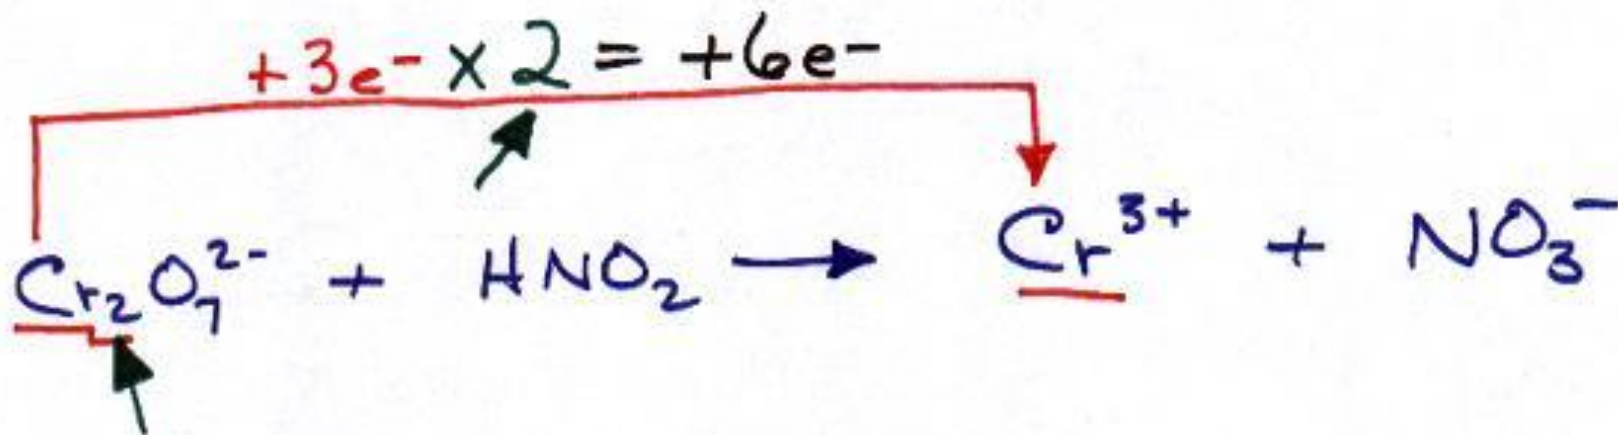 +3e⁻ x 2 = +6e⁻
Cr₂O₇²⁻ + HNO₂ → Cr³⁺ + NO₃⁻